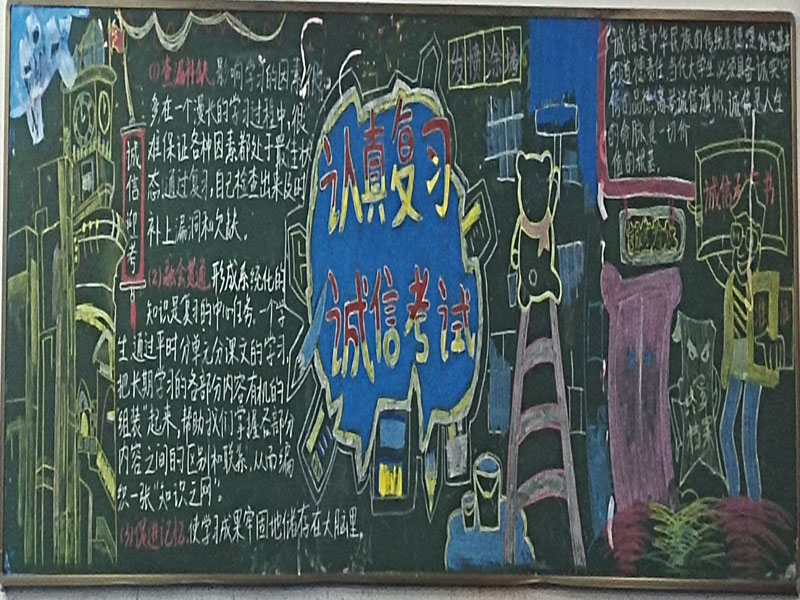 (1)查漏补缺,影响学习的因素很
多在一个漫长的学习过程中,很
难保证各种因素都处于最佳状
态,通过复习,自己检查出来及时
补上漏洞和欠缺。
(2)融会贯通,形成系统化的
知识是复习的中心任务。一个学
生通过平时分单元分课文的学习,
把长期学习的各部分内容有机的
组装"起来,帮助我们掌握各部分
内容之间的区别和联系,从而编
织一张"知识之网"。
(3)促进记忆,使学习成果牢固地储存在大脑里。
诚信迎考
认真复习
诚信考试
诚信是中华民族的传统美德
道德责任,当代大学生必须具备诚实守
信的品德,高举诚信旗帜,诚信是人生
的命脉,是一切价
值的根基。
诚信 书
档案